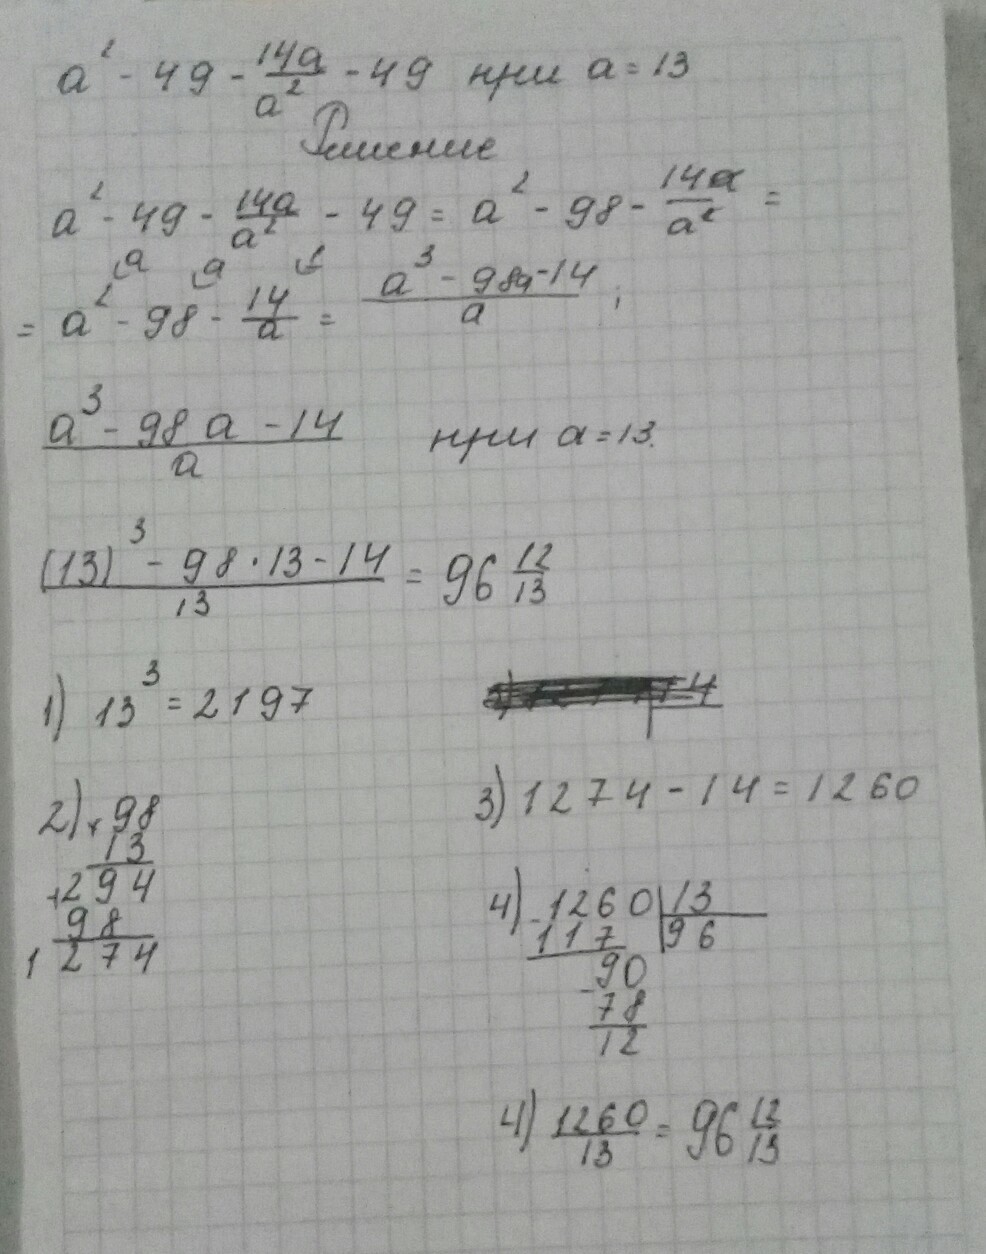 a² - 49 - 14a/a² - 49 при a = 13
Решение
a² - 49 - 14a/a² - 49 = a² - 98 - 14a/a² =
= a² - 98 - 14/a = (a³ - 98a - 14)/a ;
(a³ - 98a - 14)/a при a = 13.
((13)³ - 98 · 13 - 14)/13 = 96 12/13
1) 13³ = 2197
2) × 98
13
+ 294
98
1274
3) 1274 - 14 = 1260
4) - 1260 | 13
117 | 96
- 90
78
12
4) 1260/13 = 96 12/13